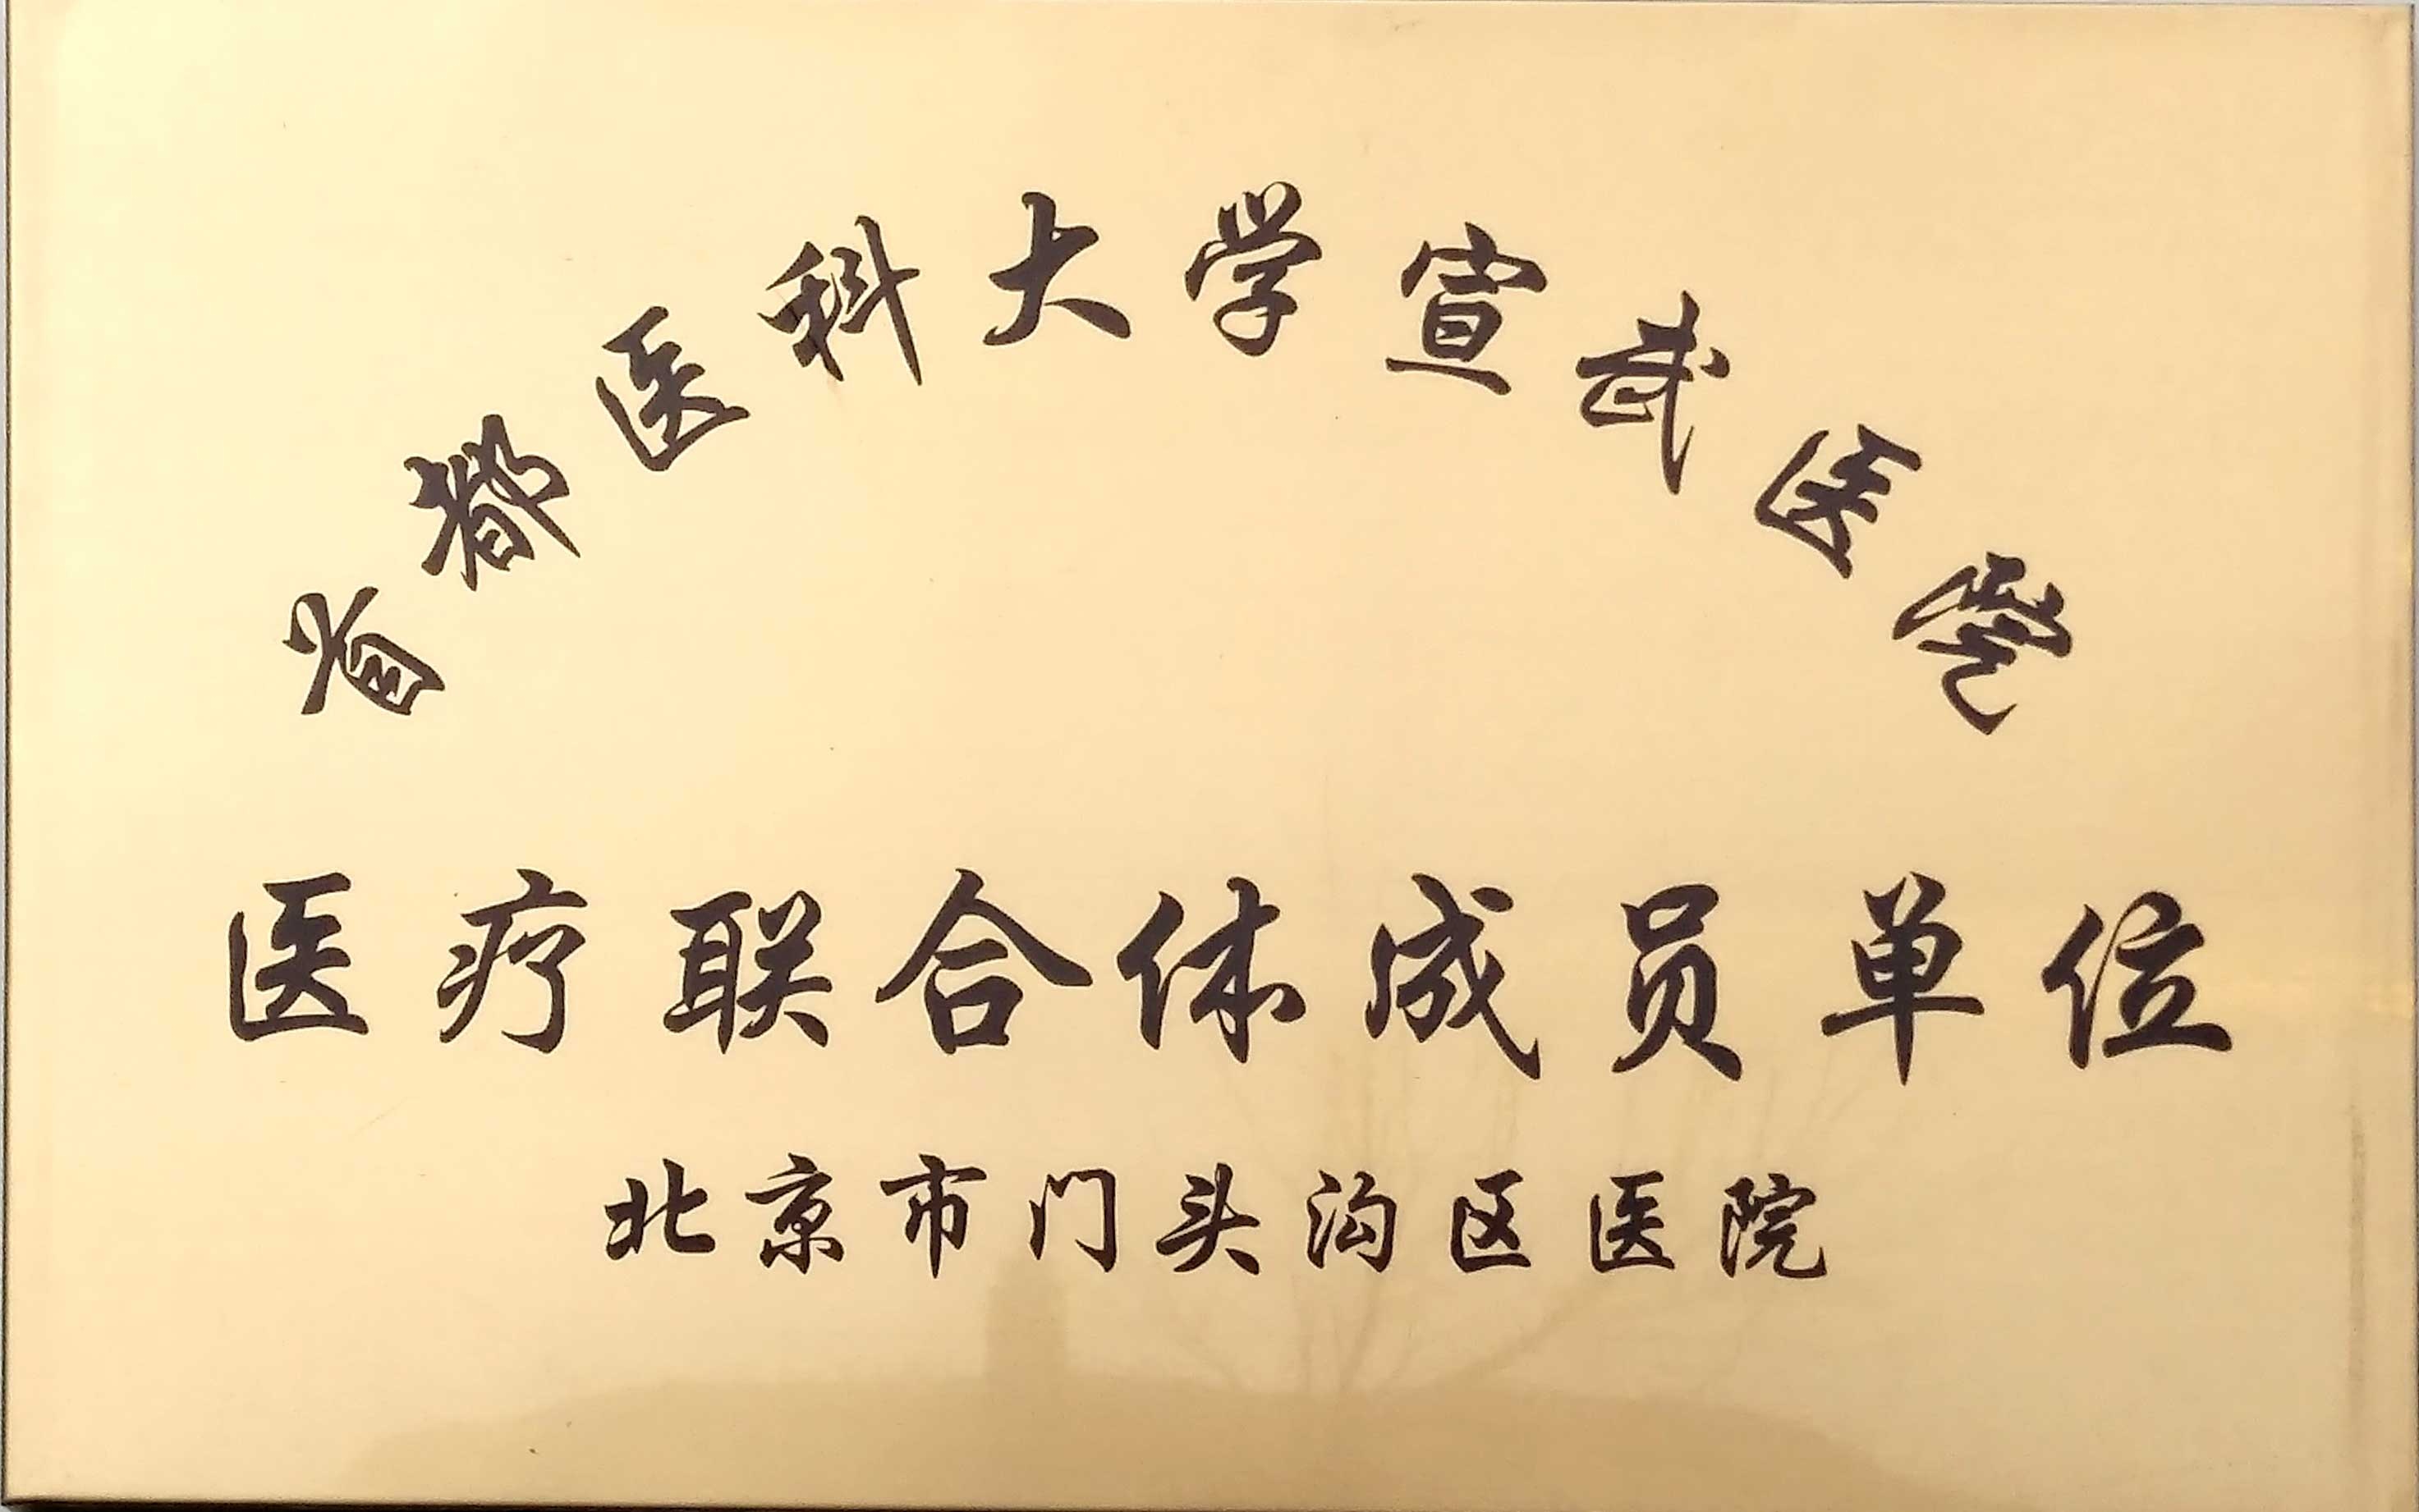 首都医科大学宣武医院
医疗联合体成员单位
北京市门头沟区医院